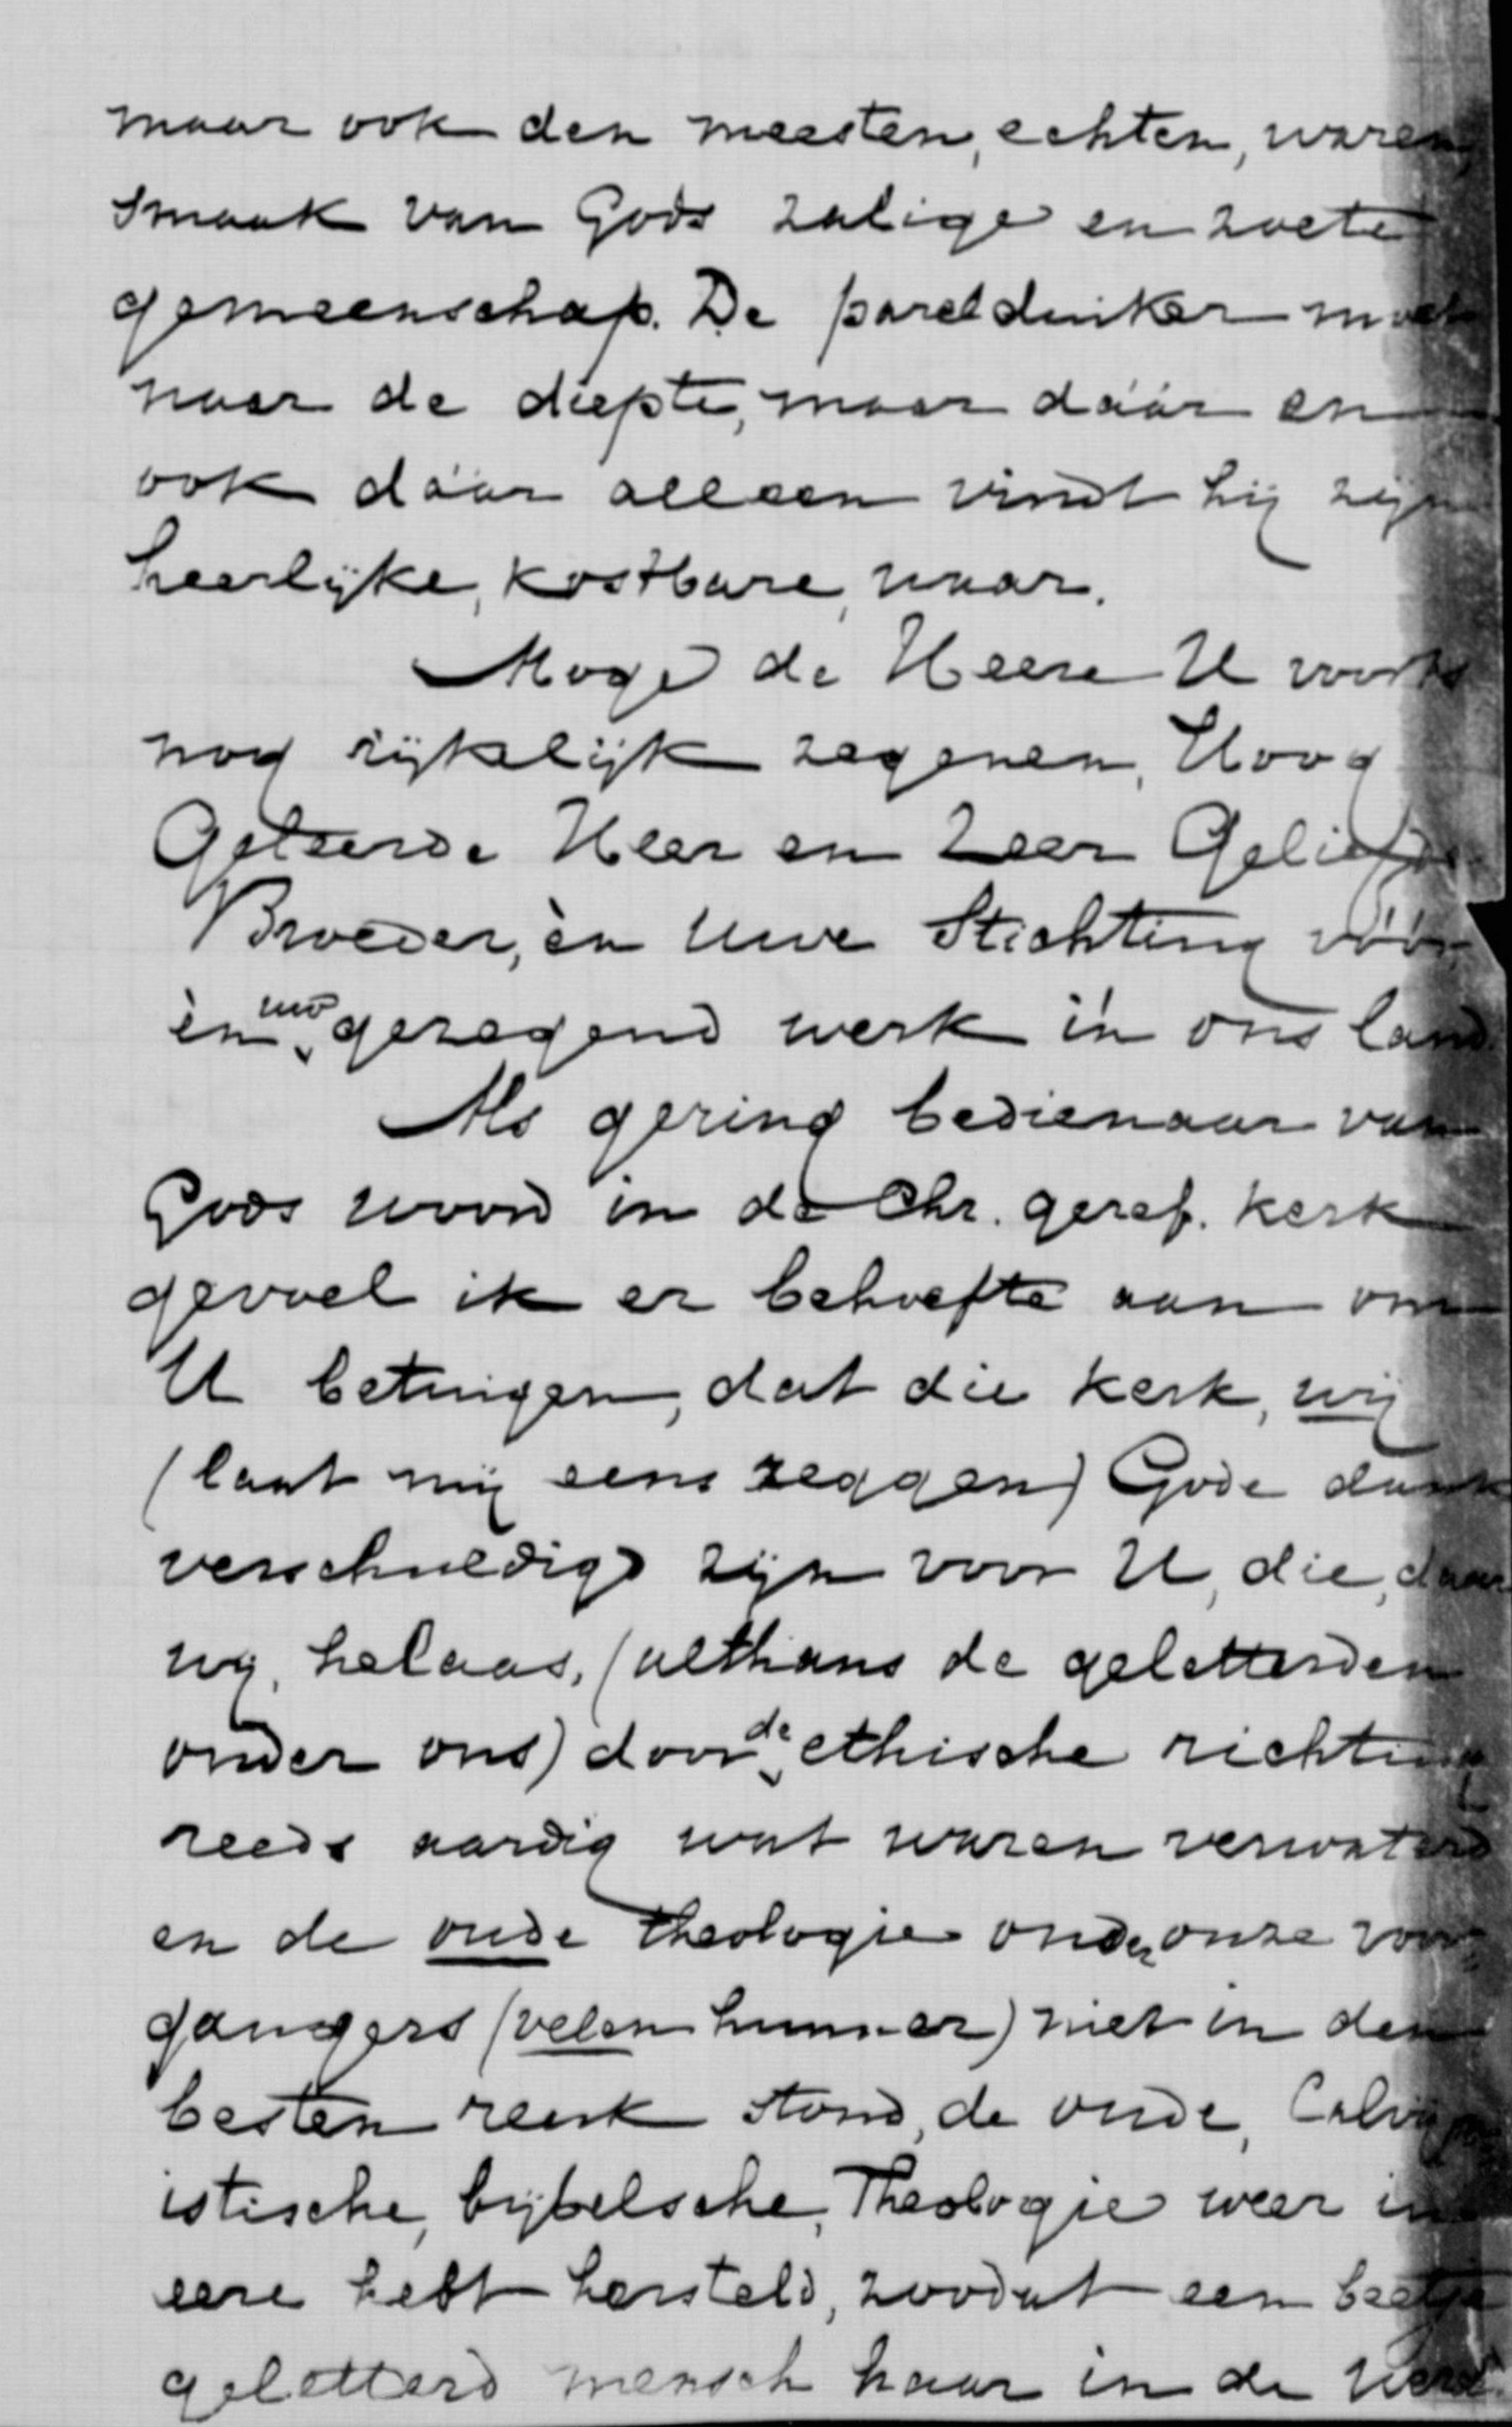 maar ook den meesten, echten, waren,
smaak van Gods zalige en zoete
gemeenschap. De parelduiker moet
naar de diepte, maar dáár en
ook dáár alleen vindt hij zijn
heerlijke, kostbare, waar.
Moge de Heere U voorts
nog rijkelijk zegenen, Hoog
Geleerde Heer en Zeer Geliefde
Broeder, èn Uwe Stichting vóór
èn uw gezegend werk in ons land.
Als gering bedienaar van
Gods woord in de Chr. geref. kerk
gevoel ik er behoefte aan om
U betuigen, dat die kerk, wij
(laat mij eens zeggen) Gode dank
verschuldigd zijn voor U, die, daar
wij, helaas, (althans de geletterden
onder ons) door de ethische richting
reeds aardig wat waren verwaterd
en de oude theologie onder onze voor
gangers (velen hunner) niet in den
besten reuk stond, de oude, Calvijn
istische, bijbelsche, Theologie weer in
eere hebt hersteld, zoodat een beetje
geletterd mensch haar in de